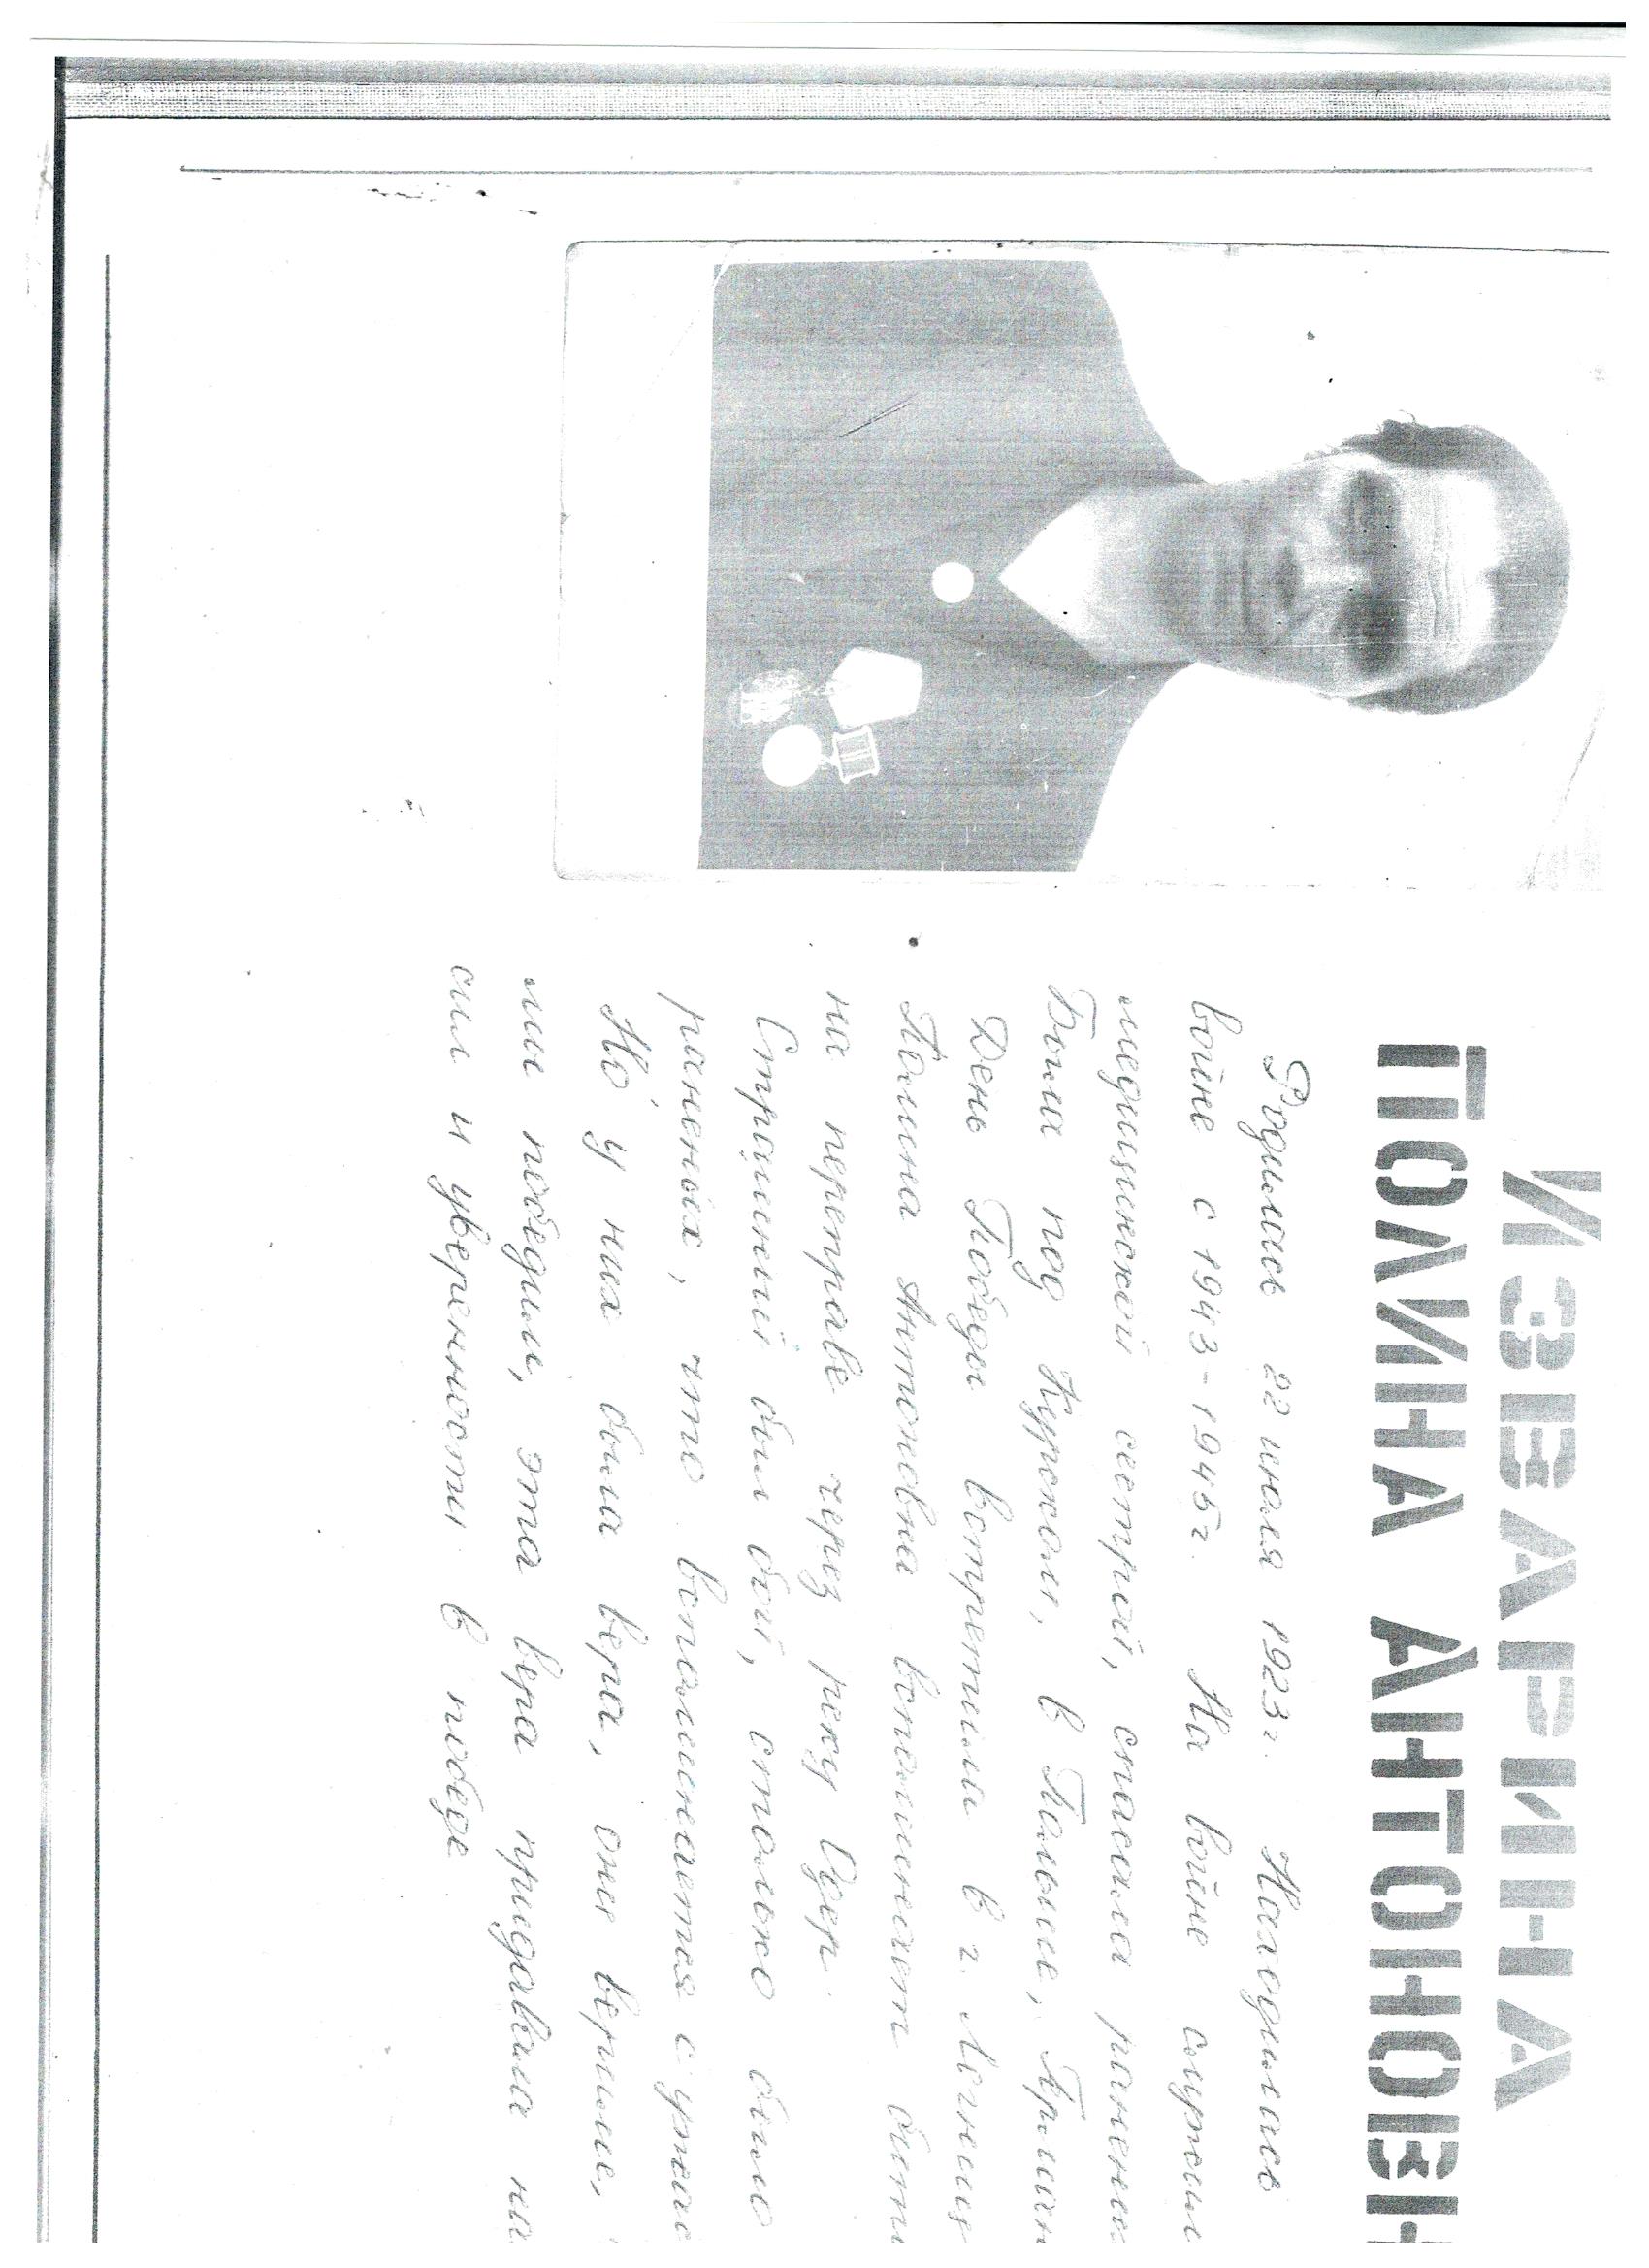 ИЗВАРИНА
ПОЛИНА АНТОНОВН
Родилась 22 июля 1923г. Находилась
войне с 1943-1945г. На войне служил
медицинской сестрой, спасала ранены
Была под Курском, в Польше, Герман
День Победы встретила в г. Легниц
Полина Антоновна вспоминает битв
на переправе через реку Одер.
Страшный был бой, столько было
раненых, что вспоминается с ужас
Но у них была вера, они верили,
мы победим, эта вера придавала на
сил и уверенности в победе